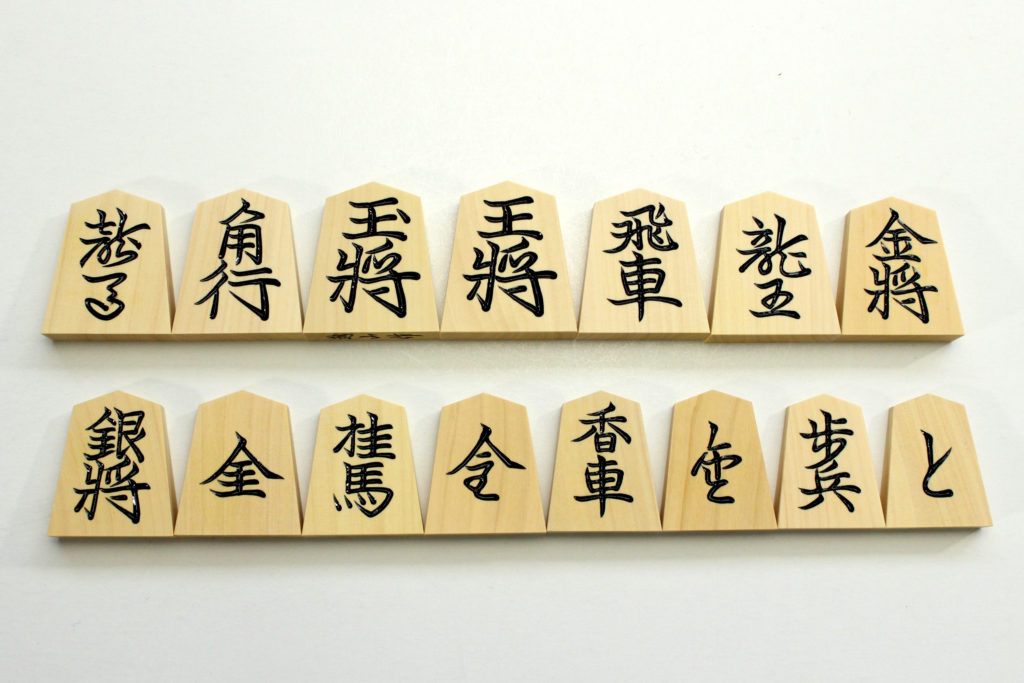 龍馬 角行 玉將 王將 飛車 龍王 金將
銀將 全 桂馬 令 香車 杏 步兵 と